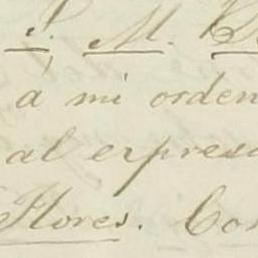 S. M.
á mi orden
al expres
Flores. Con